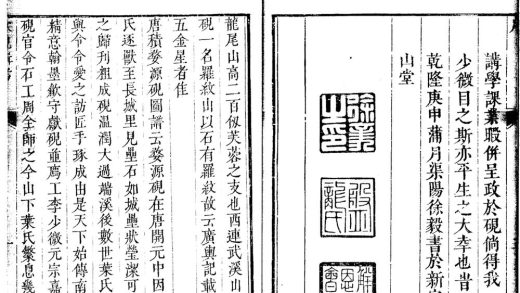 講學課業暇併呈政於硯倘得我
少微目之斯亦平生之大幸也昔
乾隆庚申蒲月渠陽徐毅書於新
山堂
徐毅之印
龍尾山高二百仭芙蓉之支也西連武溪山
硯一名羅紋山以石有羅紋故云廣輿記載
五金星者佳
唐積婺源硯圖譜云婺源硯在唐開元中因
氏逐獸至長城里見壘石如城壘狀瑩潔可
之歸刊粗成硯溫潤大過端溪後數世葉氏
與令令愛之訪匠手琢成由是天下始傳南
精意翰墨歙守獻硯薦工李少微元宗嘉
硯官令石工周全師之今山下葉氏繁息幾